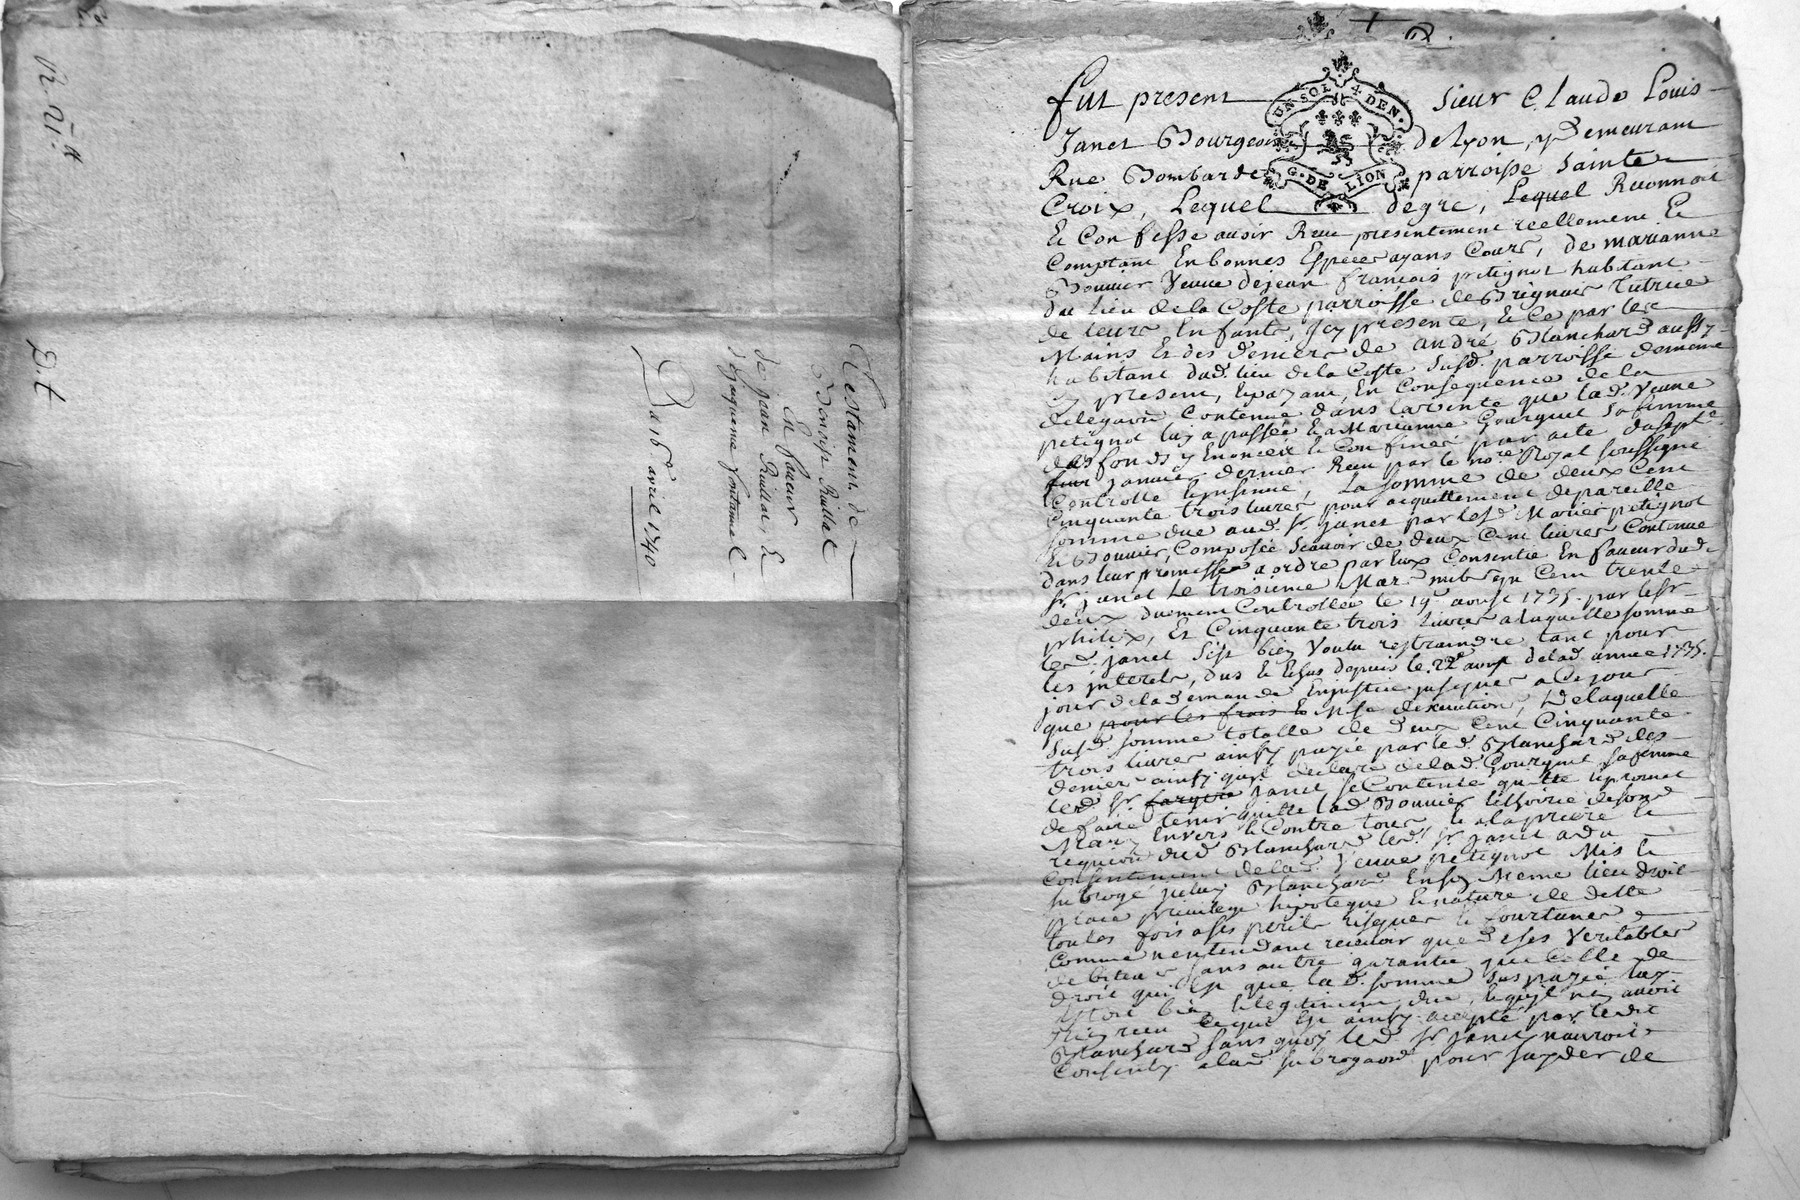 Testament de
Benoist Ruillat
En faveur
de Jean Ruillat, &
d'jzaqueme fontanel
Du 16e avril 1740
D.t
UN SOL 4 DEN.
G. DE LION
Fut present sieur Claude Louis
Janet Bourgeois de Lyon, y demeurant
Rue Bombarde parroisse Sainte
Croix, Lequel de gre, Lequel Reconnoit
Et Confesse avoir Receu presentement reellement Et
Comptant En bonnes Especes ayans Cours, de marianne
Bouvier Veuve de jean françois petignot habitant
du lieu de la Coste parroisse de Brignais Tutrice
de leurs Enfants, Jcy presente, Et Ce par les
Mains Et des deniers de andré Blanchard aussy
habitant dud. lieu de la Coste susd. parroisse de meme
cy present, Et payant, En Consequence de la
delegaõn Contenue dans la vente que lad. Veuve
petignot luy a passée Et a Marianne Gourguet sa femme
des fonds y Enoncés Et Confinés par acte du sept.e
janvier dernier Receu par le no.re Royal soussigné
Controllé Et jnsinué, La somme de deux Cent
Cinquante trois livres pour acquittement de pareille
somme due aud. Sr. janet par lesd. Mariés petignot
Et Bouvier, Composée scavoir de deux Cent livres Contenue
dans leur promesse a ordre par Eux Consentie En faveur dud.
Sr. janet Le troisieme Mars mil sept Cent trente
deux duement Controllée le 19e avril 1735. par le Sr.
philix, Et Cinquante trois livres a laquelle somme
led. janet s'est bien Voulu restraindre tant pour
les jnterets, dus Et Echus depuis le 22e avril de lad. année 1735.
jour de la demande En justice jusques a Ce jour
que pour les frais Et Mise d'execution, De laquelle
susd. somme totalle de deux Cent Cinquante
trois livres ainsy payée par led. Blanchard des
deniers ainsy qu'il declare de lad. Gourguet sa femme
led. Sr. janet se Contente quitte Et promet
de faire tenir quitte lad. Bouvier Et hoirie de son d.
Mary Envers Et Contre tous, Et a la priere Et
requisiõn dud. Blanchard led. Sr. janet a du
Consentement de lad. Veuve petignot Mis Et
subrogé jceluy Blanchard En son Meme lieu droit
place privilege hipoteque Et nature de dette
toutes fois a ses perils risques Et fourtunes
Comme n'entendant recevoir que de ses Veritables
debiteurs sans autre garantie que Celle de
droit qui Est que lad. somme sus payée luy
Etoit bien Et legitimement due, Et qu'il n'En avoit
Rien receu Ce qui Est ainsy accepté par ledit
Blanchard sans quoy led. Sr. janet n'auroit
Consenty a lad. subrogaõn pour s'ayder de